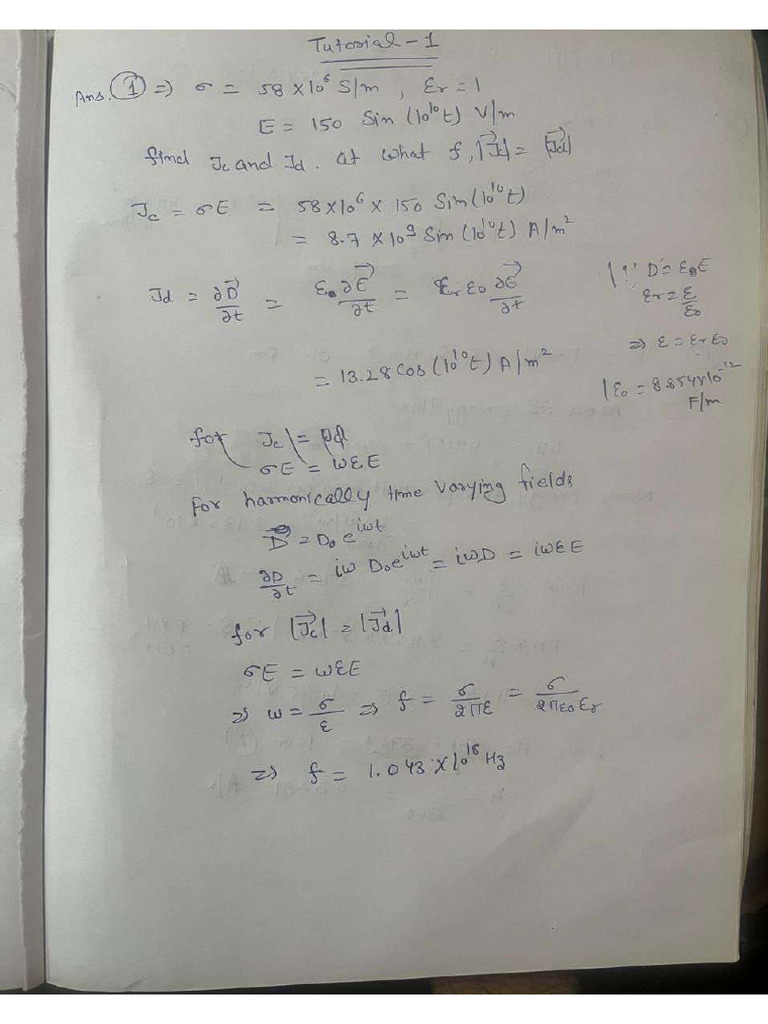 Tutorial - 1
Ans. ① ⇒ σ = 58 × 10⁶ S/m , Er = 1
E = 150 Sin (10¹⁰t) V/m
find Jc and Jd. at what f, |J⃗c| = |J⃗d|
Jc = σE = 58×10⁶ × 150 Sin(10¹⁰t)
= 8.7 × 10⁹ Sin (10¹⁰t) A/m²
Jd = ∂D⃗/∂t = ε₀∂E⃗/∂t = εr ε₀ ∂E⃗/∂t
| ∵ D = ε₀E
εr = ε/ε₀
⇒ ε = εr ε₀
= 13.28 Cos (10¹⁰t) A/m²
| ε₀ = 8.854×10⁻¹²
F/m
for Jc| = |Jd|
σE = ωεE
For harmonically time varying fields
D⃗ = D₀ e^iωt
∂D/∂t = iω D₀e^iωt = iωD = iωεE
for |J⃗c| = |J⃗d|
σE = ωεE
⇒ ω = σ/ε ⇒ f = σ/2πε = σ/2πε₀εr
⇒ f = 1.043 × 10¹⁸ Hz